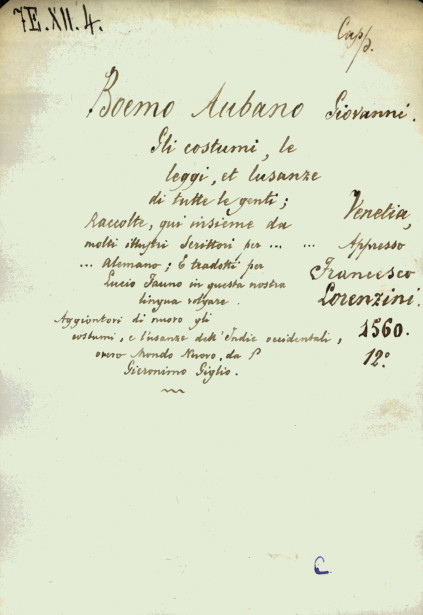 7E.XII.4.
Capp.
Boemo Aubano Giovanni.
Gli costumi, le
leggi, et l'usanze
di tutte le genti;
Raccolte, qui insieme da
molti illustri Scrittori per ... ...
... Alemano; E tradotti per
Lucio Fauno in questa nostra
lingua volgare.
Aggiontovi di nuovo gli
costumi, e l'usanze dell'Indie occidentali,
overo Mondo Nuovo, da P
Gieronimo Giglio.
Venetia,
Appresso
Francesco
Lorenzini.
1560.
12.º
C